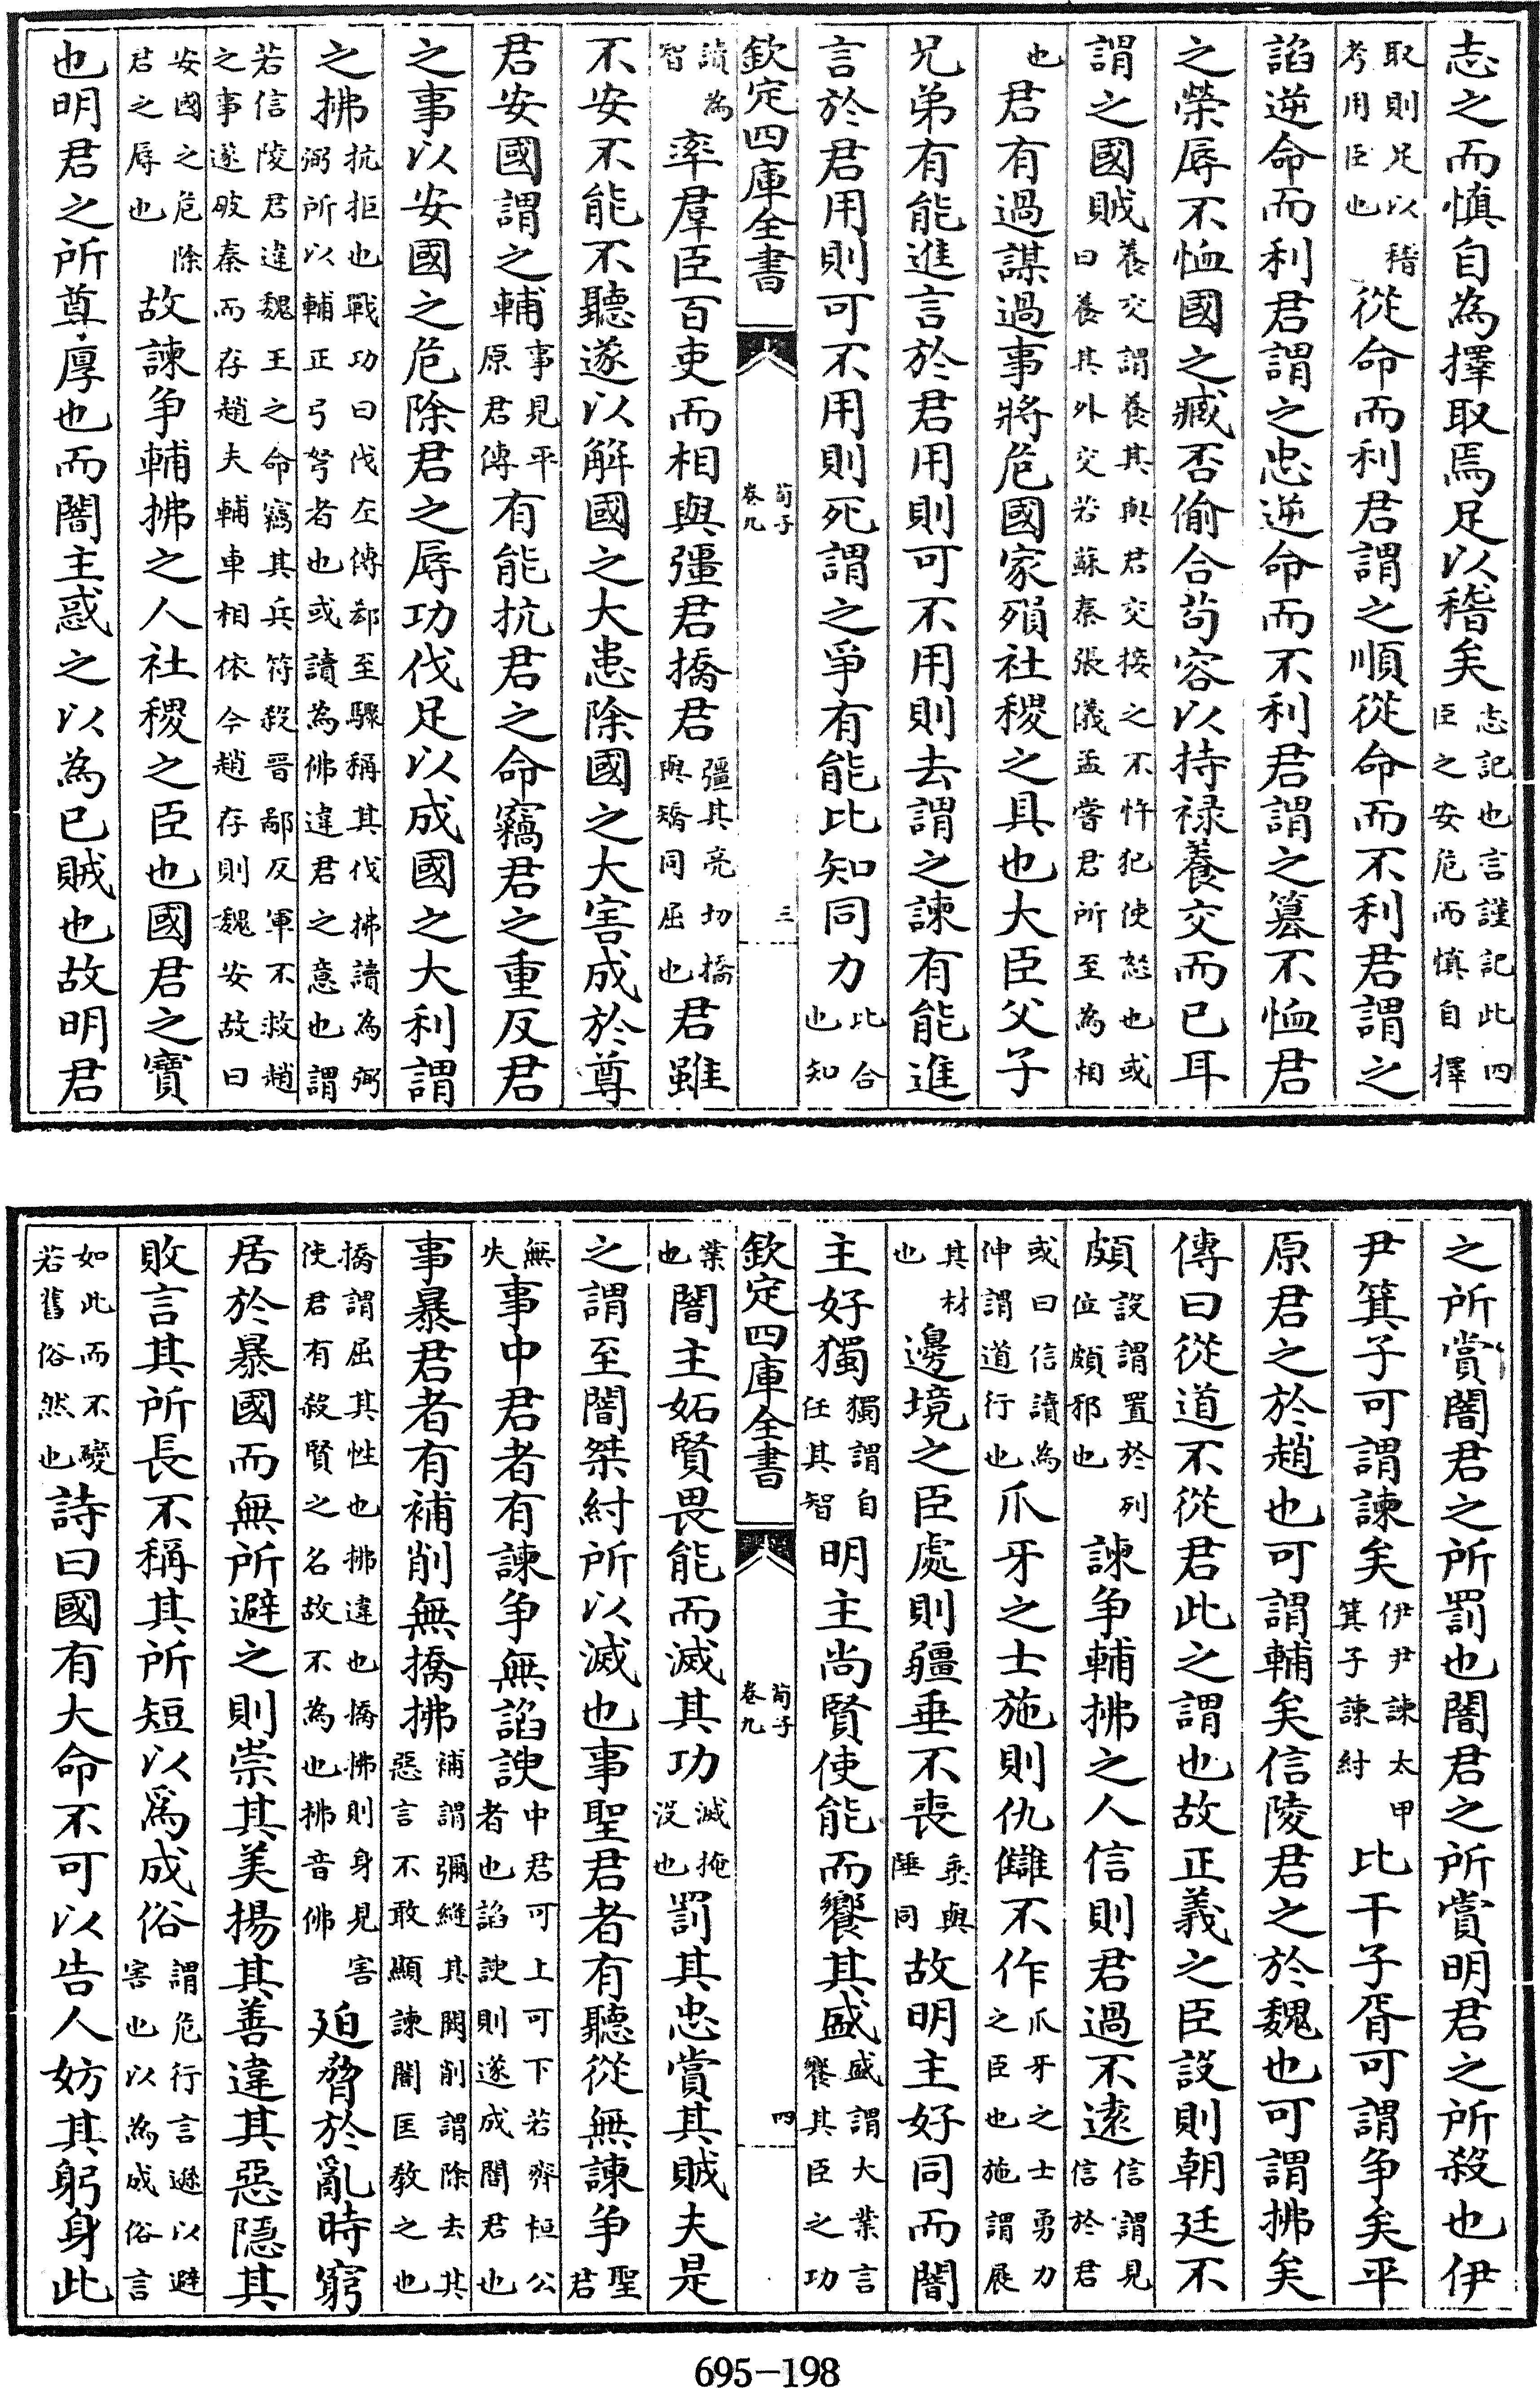 志之而慎自為擇取焉足以稽矣志記也言謹記此四臣之安危而慎自擇
取則足以稽考用臣也從命而利君謂之順從命而不利君謂之
諂逆命而利君謂之忠逆命而不利君謂之簒不恤君
之榮辱不恤國之臧否偷合茍容以持禄養交而已耳
謂之國賊養交謂養其與君交接之不忤犯使怒也或曰養其外交若蘇秦張儀孟嘗君所至為相
也君有過謀過事將危國家殞社稷之具也大臣父子
兄弟有能進言於君用則可不用則去謂之諫有能進
言於君用則可不用則死謂之爭有能比知同力比合也知
讀為智率羣臣百吏而相與彊君撟君彊其亮切撟與矯同屈也君雖
不安不能不聽遂以解國之大患除國之大害成於尊
君安國謂之輔事見平原君傳有能抗君之命竊君之重反君
之事以安國之危除君之辱功伐足以成國之大利謂
之拂抗拒也戰功曰伐左傳郄至驟稱其伐拂讀為弼弼所以輔正弓弩者也或讀為佛違君之意也謂
若信陵君違魏王之命竊其兵符殺晉鄙反軍不救趙之事遂破秦而存趙夫輔車相依今趙存則魏安故曰
安國之危除君之辱也故諫争輔拂之人社稷之臣也國君之寶
也明君之所尊厚也而闇主惑之以為已賊也故明君
欽定四庫全書
荀子
卷九
三
之所賞闇君之所罰也闇君之所賞明君之所殺也伊
尹箕子可謂諫矣伊尹諫太甲箕子諫紂比干子胥可謂争矣平
原君之於趙也可謂輔矣信陵君之於魏也可謂拂矣
傳曰從道不從君此之謂也故正義之臣設則朝廷不
頗設謂置於列位頗邪也諫争輔拂之人信則君過不逺信謂見信於君
或曰信讀為伸謂道行也爪牙之士施則仇讎不作爪牙之士勇力之臣也施謂展
其材也邊境之臣處則疆垂不喪垂與陲同故明主好同而闇
主好獨獨謂自任其智明主尚賢使能而饗其盛盛謂大業言饗其臣之功
業也闇主妬賢畏能而滅其功滅掩没也罰其忠賞其賊夫是
之謂至闇桀紂所以滅也事聖君者有聽從無諫争聖君
無失事中君者有諫争無諂諛中君可上可下若齊桓公者也諂諛則遂成闇君也
事暴君者有補削無撟拂補謂彌縫其闕削謂除去其惡言不敢顯諫闇匡救之也
撟謂屈其性也拂違也撟拂則身見害使君有殺賢之名故不為也拂音佛迫脅於亂時窮
居於暴國而無所避之則崇其美揚其善違其惡隠其
敗言其所長不稱其所短以爲成俗謂危行言遜以避害也以為成俗言
如此而不變若舊俗然也詩曰國有大命不可以告人妨其躬身此
欽定四庫全書
荀子
卷九
四
695-198